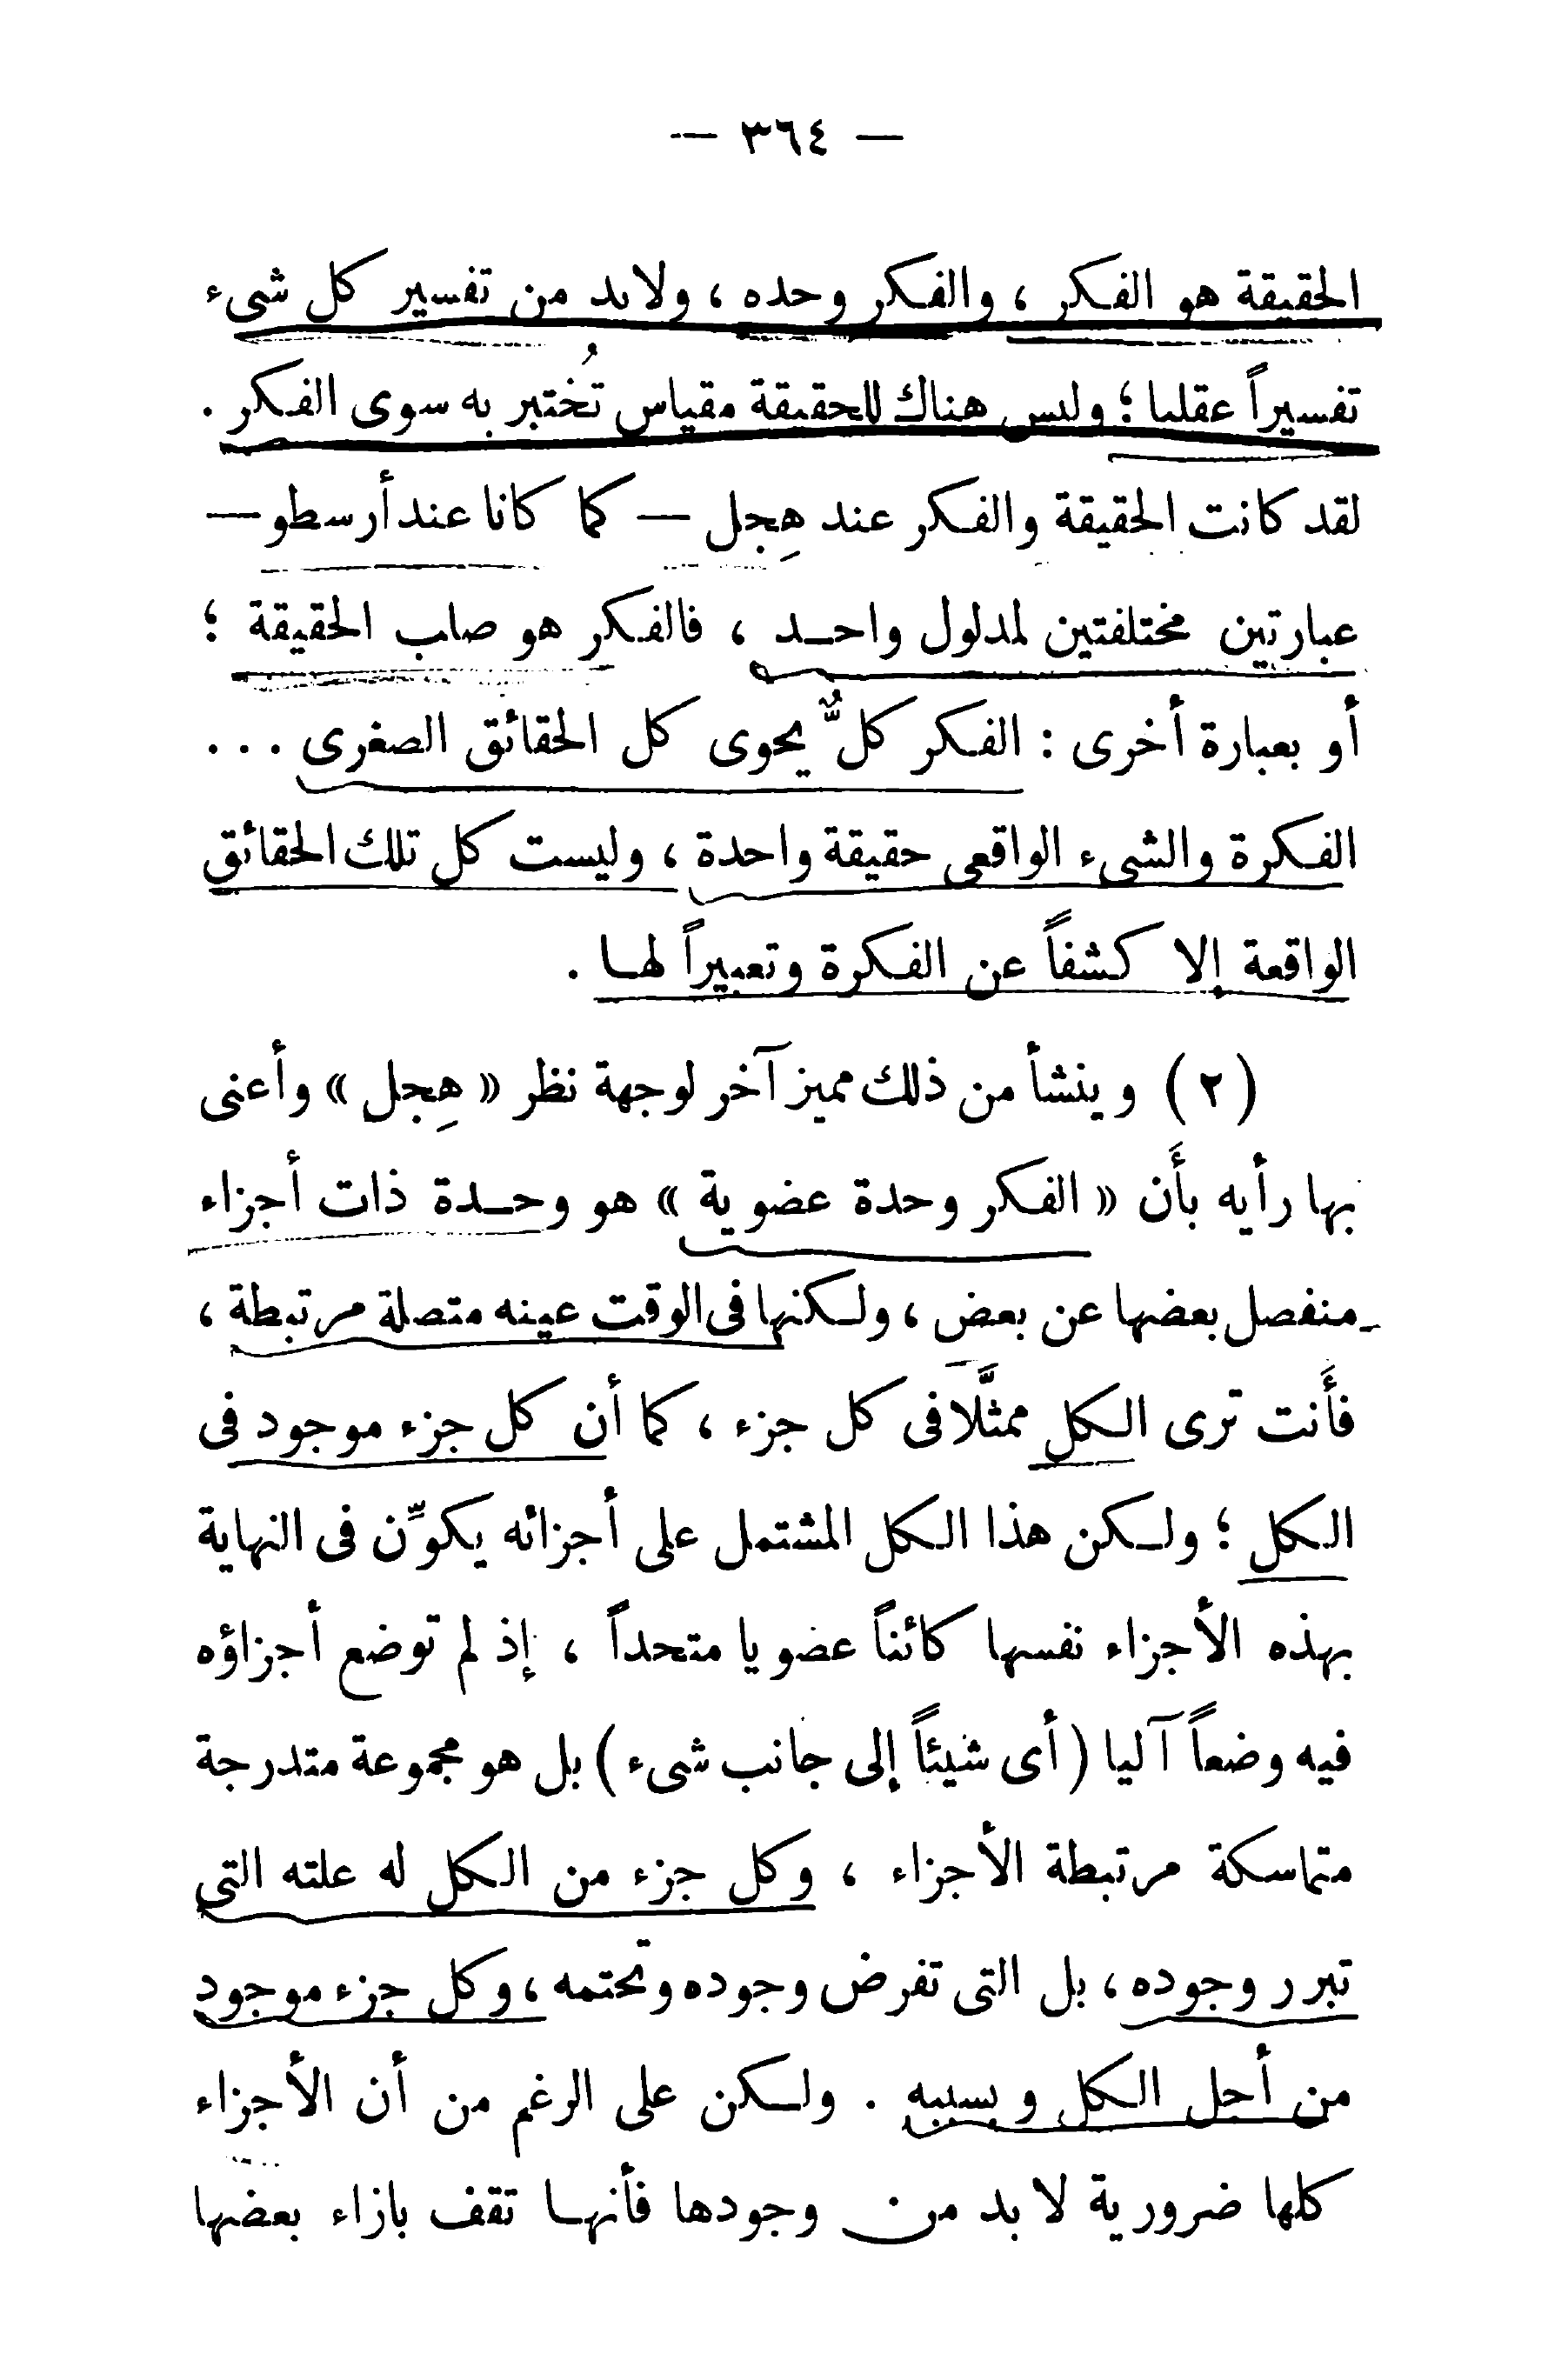 — ٣٦٤ —
الحقيقة هو الفكر ، والفكر وحده ، ولابد من تفسير كل شىء
تفسيراً عقليا ؛ وليس هناك للحقيقة مقياس تُختبر به سوى الفكر .
لقد كانت الحقيقة والفكر عند هِجل — كما كانا عند أرسطو —
عبارتين مختلفتين لمدلول واحـد ، فالفكر هو صلب الحقيقة ؛
أو بعبارة أخرى : الفكر كلٌّ يحوى كل الحقائق الصغرى . . .
الفكرة والشىء الواقعى حقيقة واحدة ، وليست كل تلك الحقائق
الواقعة إلا كشفاً عن الفكرة وتعبيراً لهـا .
( ٢ ) وينشأ من ذلك مميز آخر لوجهة نظر « هِجل » وأعنى
بها رأيه بأَن « الفكر وحدة عضوية » هو وحـدة ذات أجزاء
منفصل بعضها عن بعض ، ولـكنها فى الوقت عينه متصلة مرتبطة ،
فأَنت ترى الـكل ممثَّلا فى كل جزء ، كما أن كل جزء موجود فى
الـكل ؛ ولـكن هذا الـكل المشتمل على أجزائه يكوِّن فى النهاية
بهذه الأجزاء نفسها كائناً عضويا متحداً ، إذ لم توضع أجزاؤه
فيه وضعاً آليا ( أى شيئاً إلى جانب شىء ) بل هو مجموعة متدرجة
متماسكة مرتبطة الأجزاء ، وكل جزء من الـكل له علته التى
تبرر وجوده ، بل التى تفرض وجوده وتحتمه ، وكل جزء موجود
من أجل الـكل وبسببه . ولـكن على الرغم من أن الأجزاء
كلها ضرورية لا بد من وجودها فأنهـا تقف بازاء بعضها